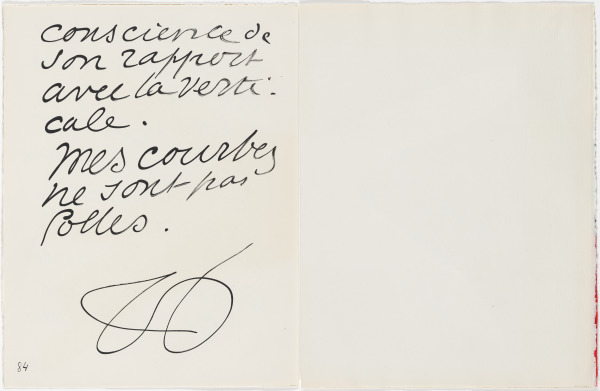 conscience de
son rapport
avec la verti-
cale.
Mes courbes
ne sont pas
folles.
84